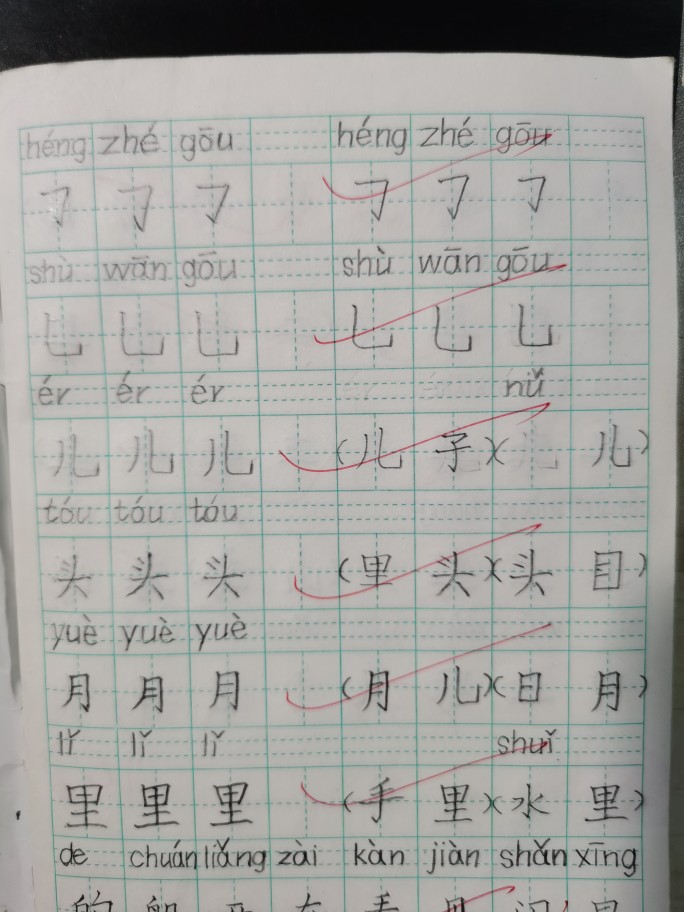 héng zhé gōu héng zhé gōu
㇆ ㇆ ㇆ ㇆ ㇆ ㇆
shù wān gōu shù wān gōu
乚 乚 乚 乚 乚 乚
ér ér ér nǚ
儿 儿 儿 (儿 子)( 儿)
tóu tóu tóu
头 头 头 (里 头)(头 目)
yuè yuè yuè
月 月 月 (月 儿)(日 月)
lǐ lǐ lǐ shuǐ
里 里 里 (手 里)(水 里)
de chuán liǎng zài kàn jiàn shǎn xīng